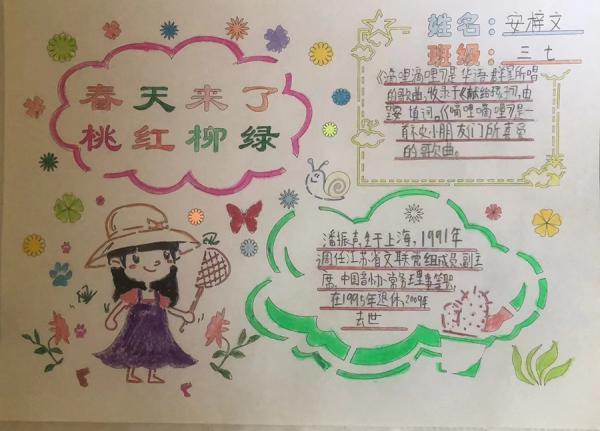 春天来了
桃红柳绿
姓名：安梓文
班级：三七
《嘀哩嘀哩》是 华语群星所唱
的歌曲，收录于《献给孩子》，由
填词。《嘀哩嘀哩》是
小朋友们所喜爱
的歌曲。
潘振声，生于上海，1991年
调任江苏省文联党组成员、副主
席、中国音协常务理事等职，
在1995年退休，2009年
去世